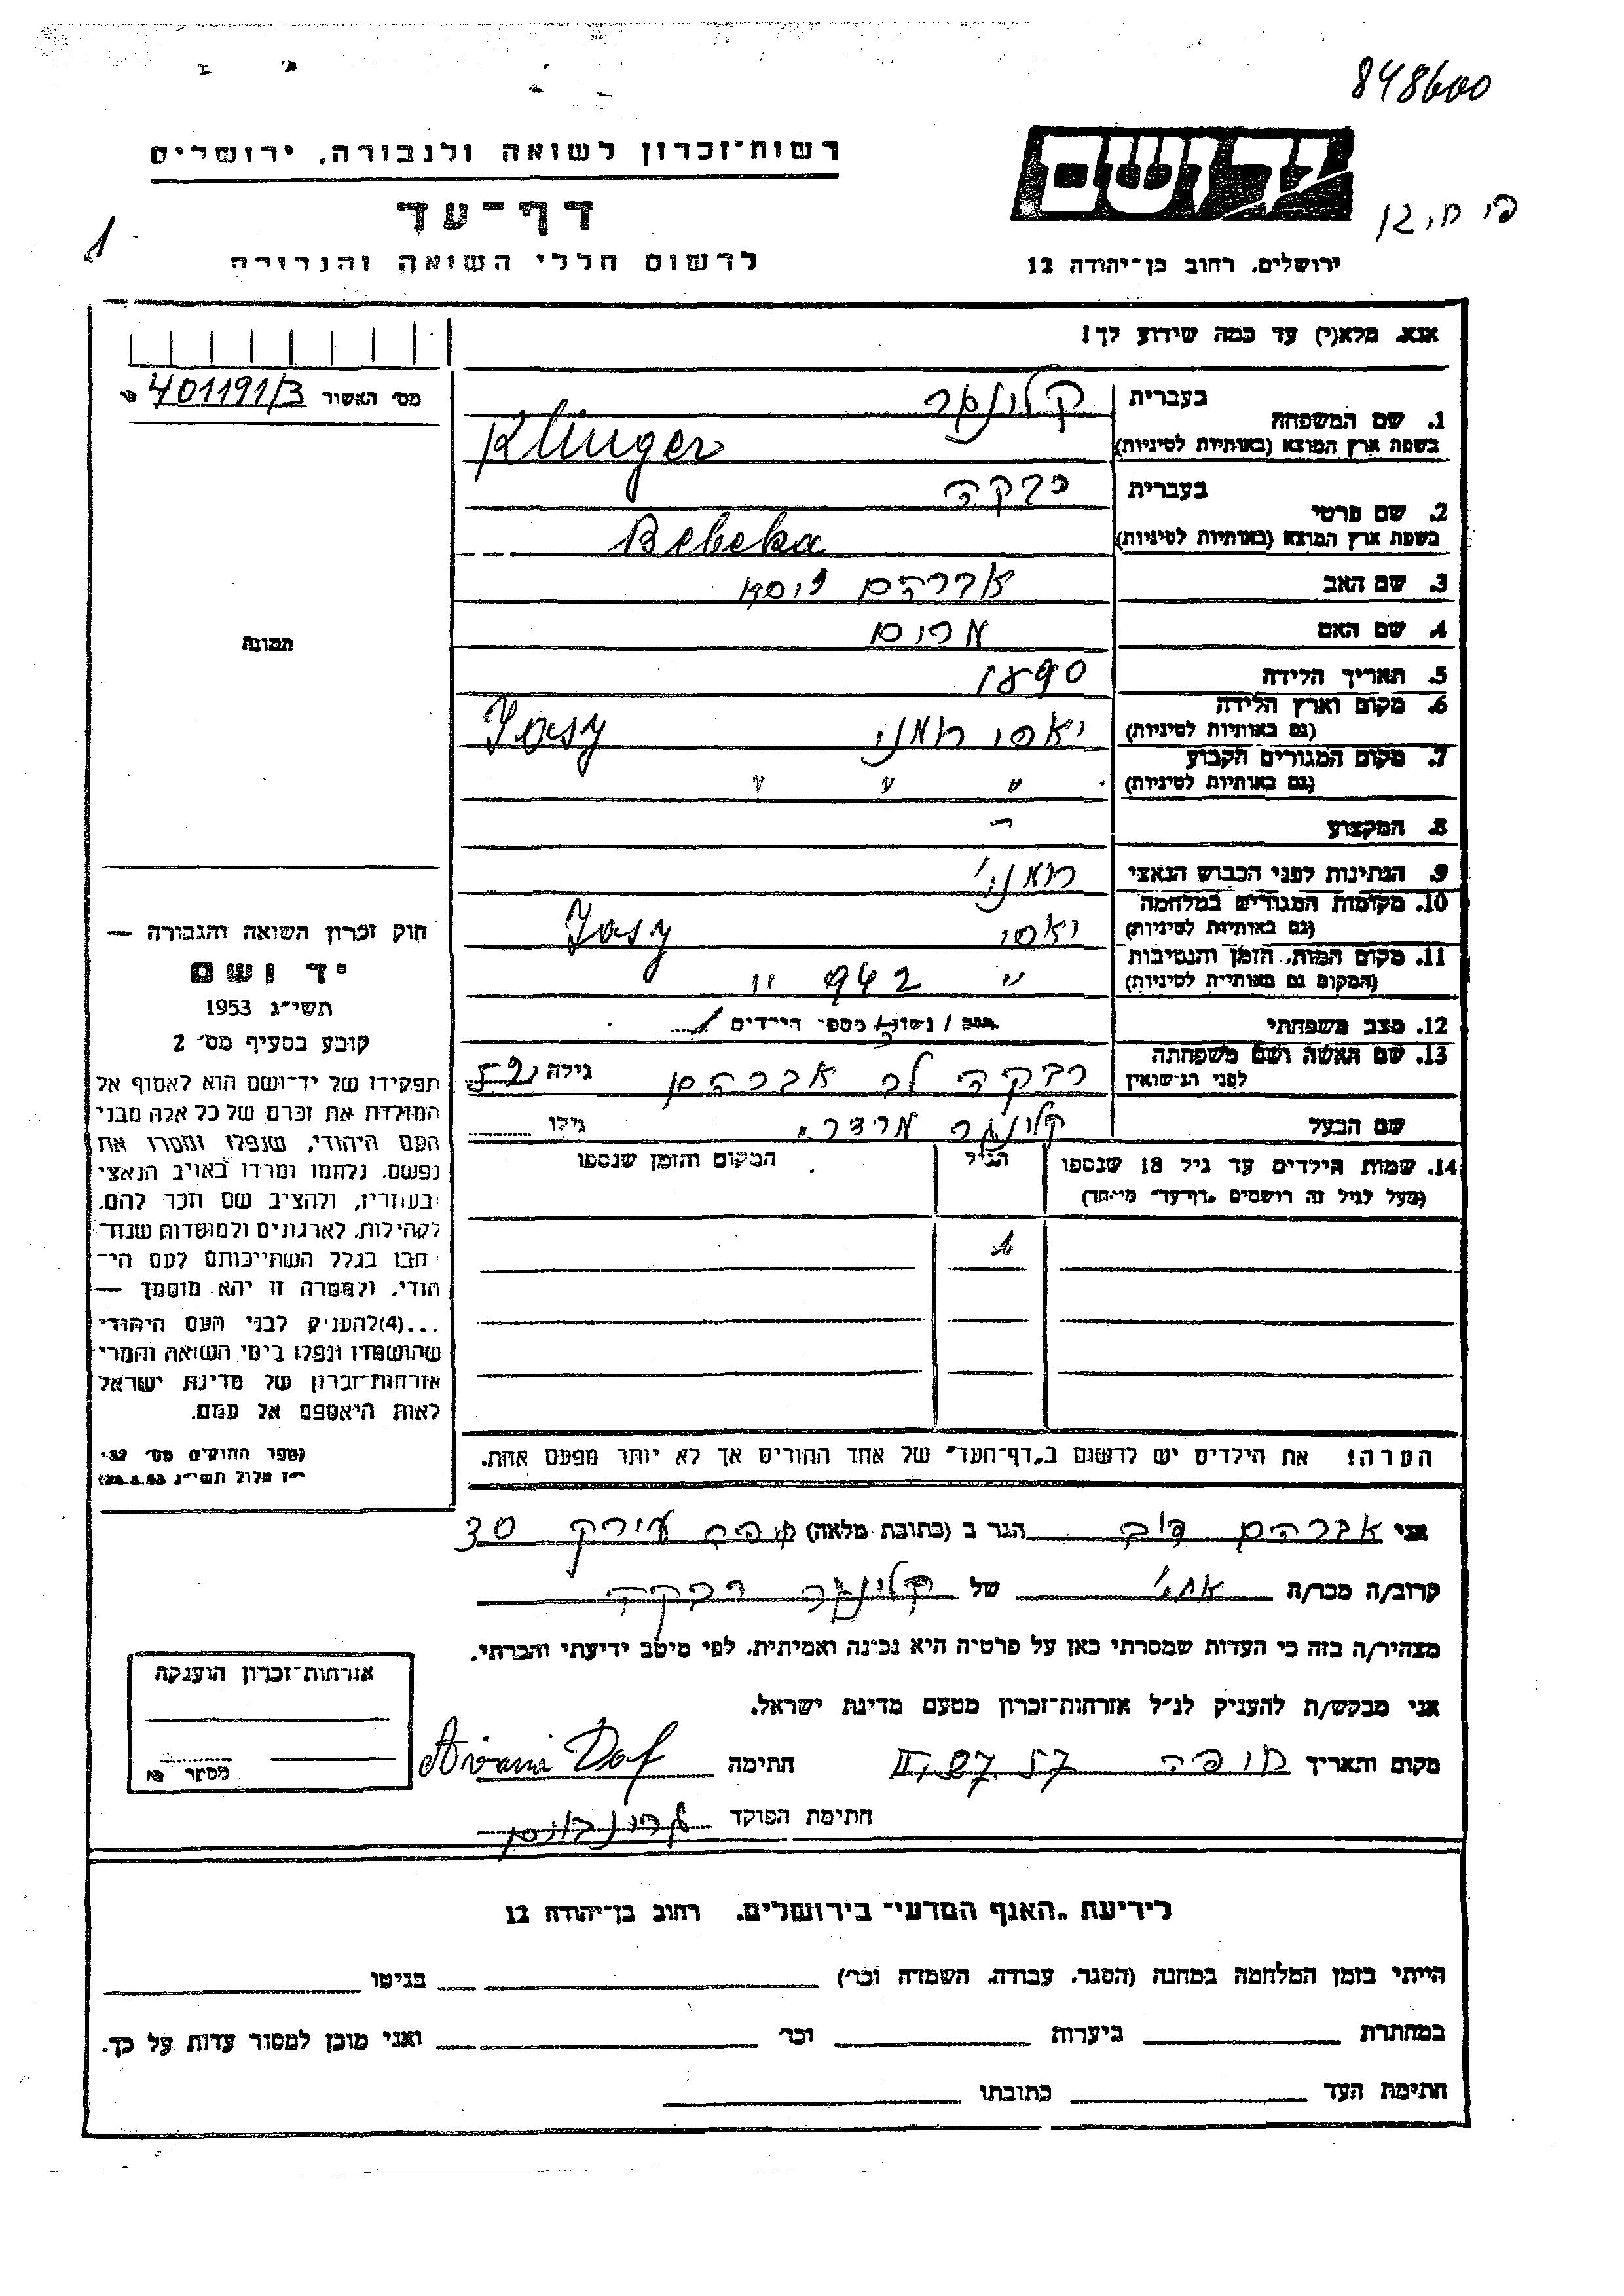 848600
רשות־זכרון לשואה ולגבורה, ירושלים
יד ושם
דף־עד
1
לרשום חללי השואה והגבורה
ירושלים, רחוב בן־יהודה 12
אנא, מלא(י) עד כמה שידוע לך!
מס׳ האשור 401191/3
1. שם המשפחה
בעברית קלינגר
בשפת ארץ המוצא (באותיות לטיניות) Klinger
2. שם פרטי
בעברית רבקה
בשפת ארץ המוצא (באותיות לטיניות) Rebeka
תמונה
3. שם האב אברהם יוסף
4. שם האם מרים
5. תאריך הלידה 1890
6. מקום וארץ הלידה
(גם באותיות לטיניות) יאסי רומני Jasy
7. מקום המגורים הקבוע
(גם באותיות לטיניות) " " "
8. המקצוע -
9. הנתינות לפני הכבוש הנאצי רומני׳
10. מקומות המגורים במלחמה
(גם באותיות לטיניות) יאסי Jasy
11. מקום המות, הזמן והנסיבות
(המקום גם באותיות לטיניות) " 942 "
12. מצב משפחתי רווק / נשוי/ מספר הילדים 1
13. שם האשה ושם משפחתה
לפני הנישואין רבקה אברהם גילה 52
שם הבעל קלינגר גילו
14. שמות הילדים עד גיל 18 שנספו
(מעל לגיל זה רושמים „דף־עד״ מיוחד)
הגיל
המקום והזמן שנספו
1
חוק זכרון השואה והגבורה —
יד ושם
תשי״ג 1953
קובע בסעיף מס׳ 2
תפקידו של יד־ושם הוא לאסוף אל
המולדת את זכרם של כל אלה מבני
העם היהודי, שנפלו ומסרו את
נפשם, נלחמו ומרדו באויב הנאצי
ובעוזריו, ולהציב שם וזכר להם,
לקהילות, לארגונים ולמוסדות שנח־
רבו בגלל השתייכותם לעם הי־
הודי, ולמטרה זו יהא מוסמך —
...(4)להעניק לבני העם היהודי
שהושמדו ונפלו בימי השואה והמרי
אזרחות־זכרון של מדינת ישראל
לאות היאספם אל עמם.
(ספר החוקים מס׳ 132,
י״ז אלול תשי״ג 28.8.53)
הערה! את הילדים יש לרשום ב„דף־העד״ של אחד ההורים אך לא יותר מפעם אחת.
אני אברהם דוב הגר ב (כתובת מלאה) עירק 30
קרוב/ה מכר/ה אחי של קלינגר רבקה
מצהיר/ה בזה כי העדות שמסרתי כאן על פרטיה היא נכונה ואמיתית, לפי מיטב ידיעתי והכרתי.
אני מבקש/ת להעניק לנ״ל אזרחות־זכרון מטעם מדינת ישראל.
מקום ותאריך חיפה חתימה
חתימת הפוקד
אזרחות־זכרון הוענקה
מספר №
לידיעת „האגף המדעי״ בירושלים, רחוב בן־יהודה 12
הייתי בזמן המלחמה במחנה (הסגר, עבודה, השמדה וכו׳) בגיטו
במחתרת ביערות וכו׳ ואני מוכן למסור עדות על כך.
חתימת העד כתובתו